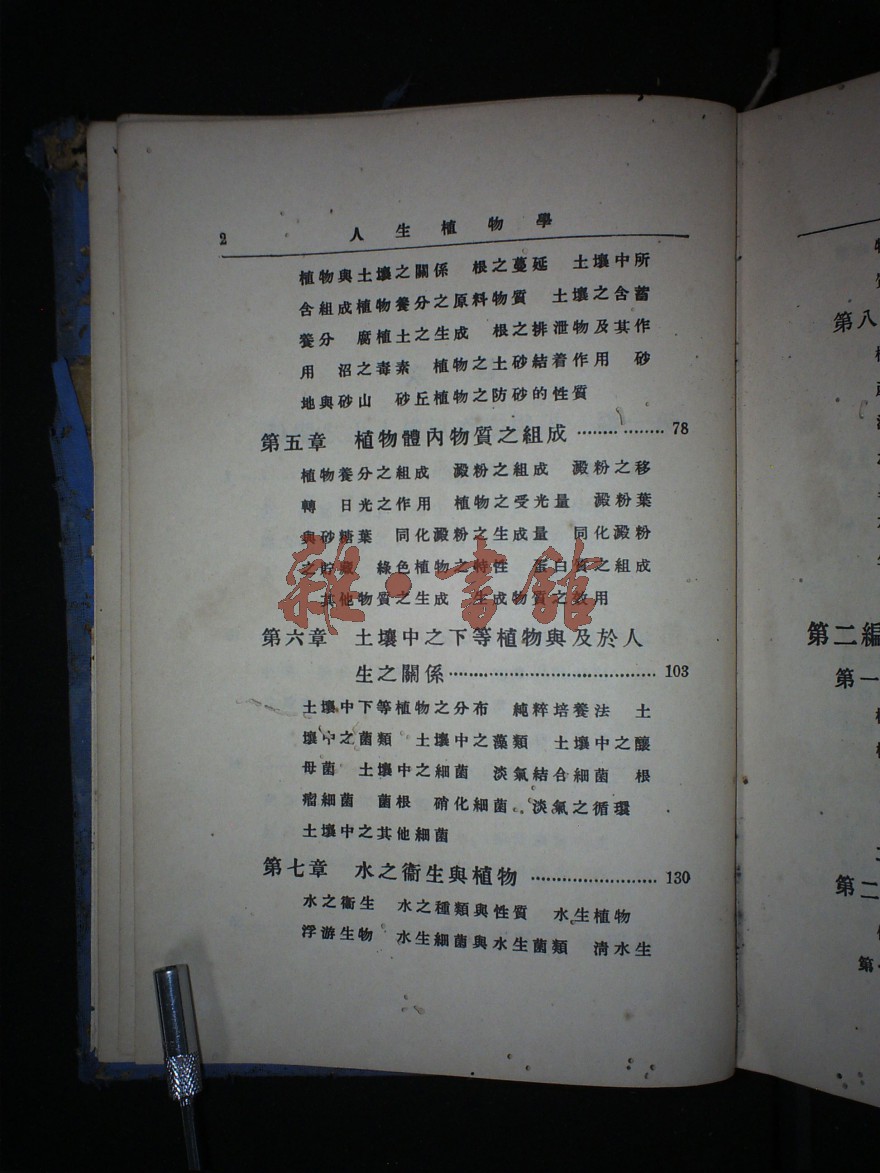 2 人生植物學
植物與土壤之關係 根之蔓延 土壤中所
含組成植物養分之原料物質 土壤之含蓄
養分 腐植土之生成 根之排泄物及其作
用 沼之毒素 植物之土砂結着作用 砂
地與砂山 砂丘植物之防砂的性質
第五章 植物體內物質之組成 ……………… 78
植物養分之組成 澱粉之組成 澱粉之移
轉 日光之作用 植物之受光量 澱粉葉
與砂糖葉 同化澱粉之生成量 同化澱粉
之貯藏 綠色植物之特性 蛋白質之組成
其他物質之生成 生成物質之效用
雜·書館
第六章 土壤中之下等植物與及於人
生之關係 ……………………………… 103
土壤中下等植物之分布 純粹培養法 土
壤中之菌類 土壤中之藻類 土壤中之釀
母菌 土壤中之細菌 淡氣結合細菌 根
瘤細菌 菌根 硝化細菌 淡氣之循環
土壤中之其他細菌
第七章 水之衞生與植物 ………………… 130
水之衞生 水之種類與性質 水生植物
浮游生物 水生細菌與水生菌類 清水生
第八
第二編
第一
第二